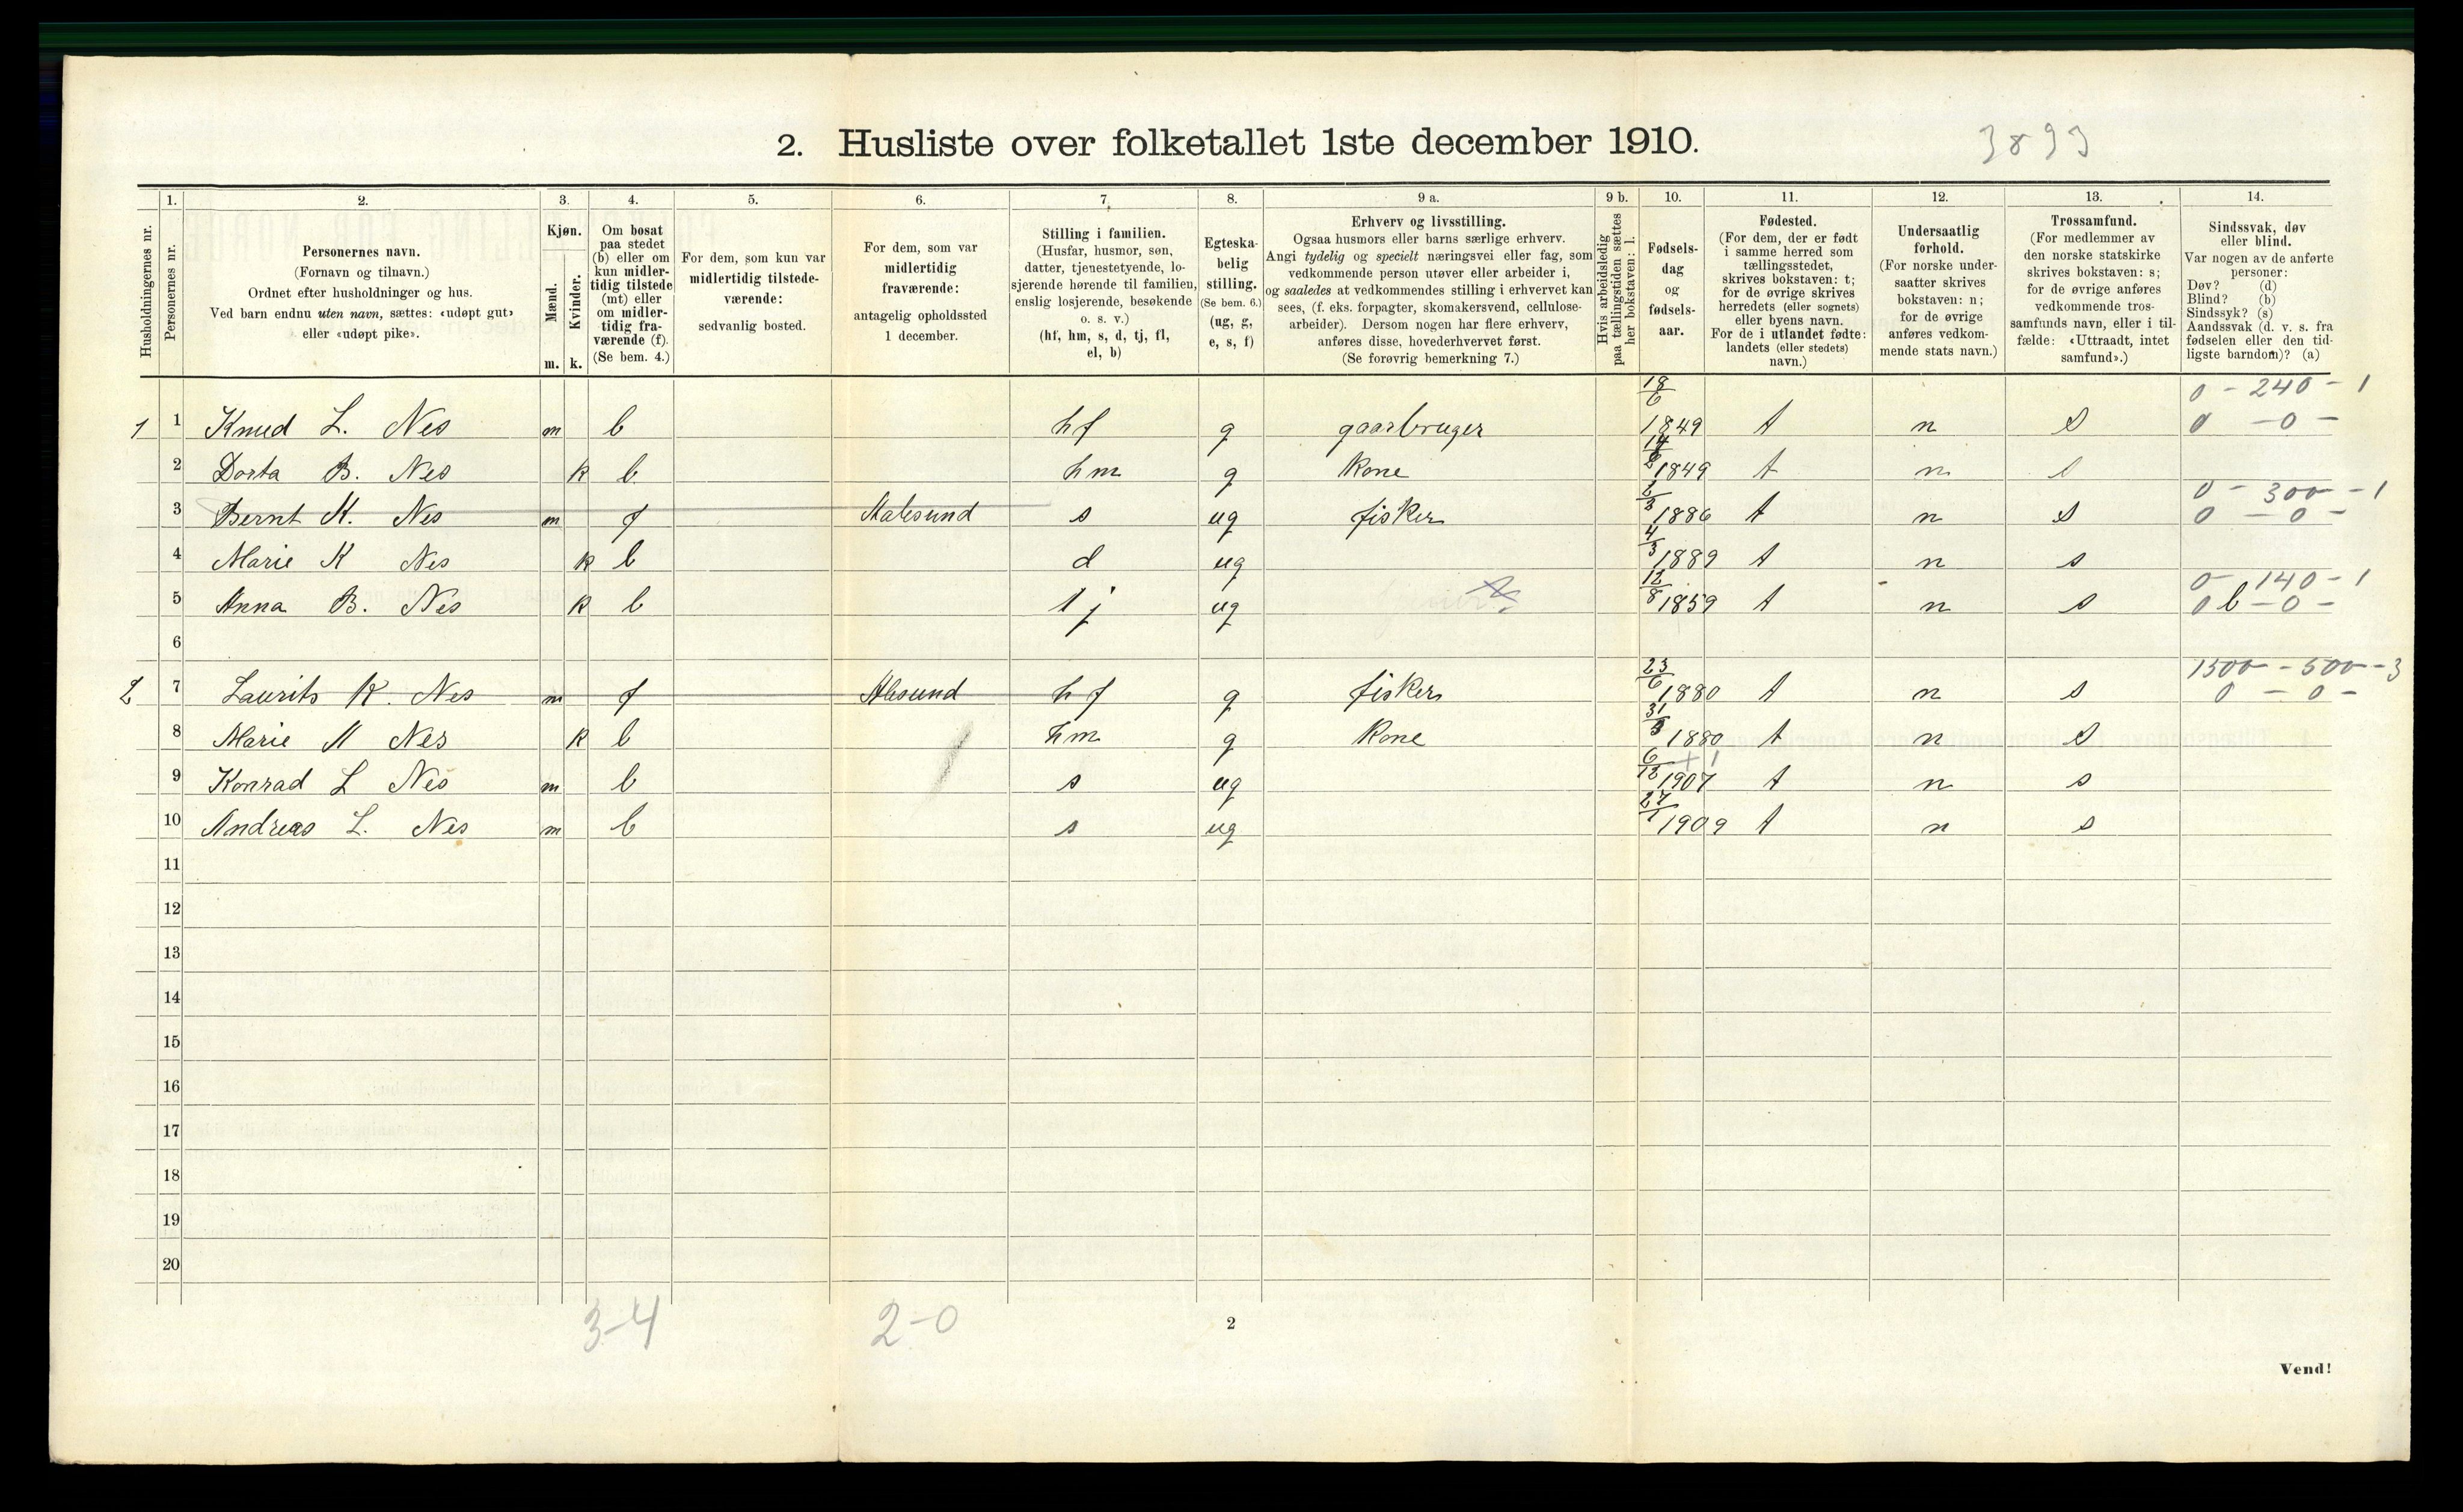 2. Husliste over folketallet 1ste december 1910.
3893
Husholdningernes nr.
1.
Personernes nr.
2.
Personernes navn.
(Fornavn og tilnavn.)
Ordnet efter husholdninger og hus.
Ved barn endnu uten navn, sættes: «udøpt gut»
eller «udøpt pike».
3.
Kjøn.
Mænd.
Kvinder.
m. k.
4.
Om bosat
paa stedet
(b) eller om
kun midler-
tidig tilstede
(mt) eller
om midler-
tidig fra-
værende (f).
(Se bem. 4.)
5.
For dem, som kun var
midlertidig tilstede-
værende:
sedvanlig bosted.
6.
For dem, som var
midlertidig
fraværende:
antagelig opholdssted
1 december.
7.
Stilling i familien.
(Husfar, husmor, søn,
datter, tjenestetyende, lo-
sjerende hørende til familien,
enslig losjerende, besøkende
o. s. v.)
(hf, hm, s, d, tj, fl,
el, b)
8.
Egteska-
belig
stilling.
(Se bem. 6.)
(ug, g,
e, s, f)
9 a.
Erhverv og livsstilling.
Ogsaa husmors eller barns særlige erhverv.
Angi tydelig og specielt næringsvei eller fag, som
vedkommende person utøver eller arbeider i,
og saaledes at vedkommendes stilling i erhvervet kan
sees, (f. eks. forpagter, skomakersvend, cellulose-
arbeider). Dersom nogen har flere erhverv,
anføres disse, hovederhvervet først.
(Se forøvrig bemerkning 7.)
9 b.
Hvis arbeidsledig
paa tællingstiden sættes
her bokstaven: l.
10.
Fødsels-
dag
og
fødsels-
aar.
11.
Fødested.
(For dem, der er født
i samme herred som
tællingsstedet,
skrives bokstaven: t;
for de øvrige skrives
herredets (eller sognets)
eller byens navn.
For de i utlandet fødte:
landets (eller stedets)
navn.)
12.
Undersaatlig
forhold.
(For norske under-
saatter skrives
bokstaven: n;
for de øvrige
anføres vedkom-
mende stats navn.)
13.
Trossamfund.
(For medlemmer av
den norske statskirke
skrives bokstaven: s;
for de øvrige anføres
vedkommende tros-
samfunds navn, eller i til-
fælde: «Uttraadt, intet
samfund».)
14.
Sindssvak, døv
eller blind.
Var nogen av de anførte
personer:
Døv? (d)
Blind? (b)
Sindssyk? (s)
Aandssvak (d. v. s. fra
fødselen eller den tid-
ligste barndom)? (a)
0 - 240 - 1
1 1 Knud L. Nes m b hf g gaarbruger 18/6 1849 t n s 0 - 0 -
2 Dorta B. Nes k b hm g Kone 1849 t n s
0 - 300 - 1
3 Bernt K. Nes m f Aalesund s ug fisker 1886 t n s 0 - 0 -
4 Marie K Nes k b d ug 4/3 1889 t n s
0 - 140 - 1
5 Anna B. Nes k b tj ug 12/8 1859 t n s 0 b - 0 -
6
1500 - 500 - 3
2 7 Laurits K. Nes m f Alesund hf g fisker 23/6 1880 t n s 0 - 0 -
8 Marie M Nes k b hm g Kone 31/3 1880 t n s
+ 1
9 Konrad L Nes m b s ug 6/12 1907 t n s
10 Andreas L. Nes m b s ug 1909 t n s
11
12
13
14
15
16
17
18
19
20
3-4 2-0
2
Vend!